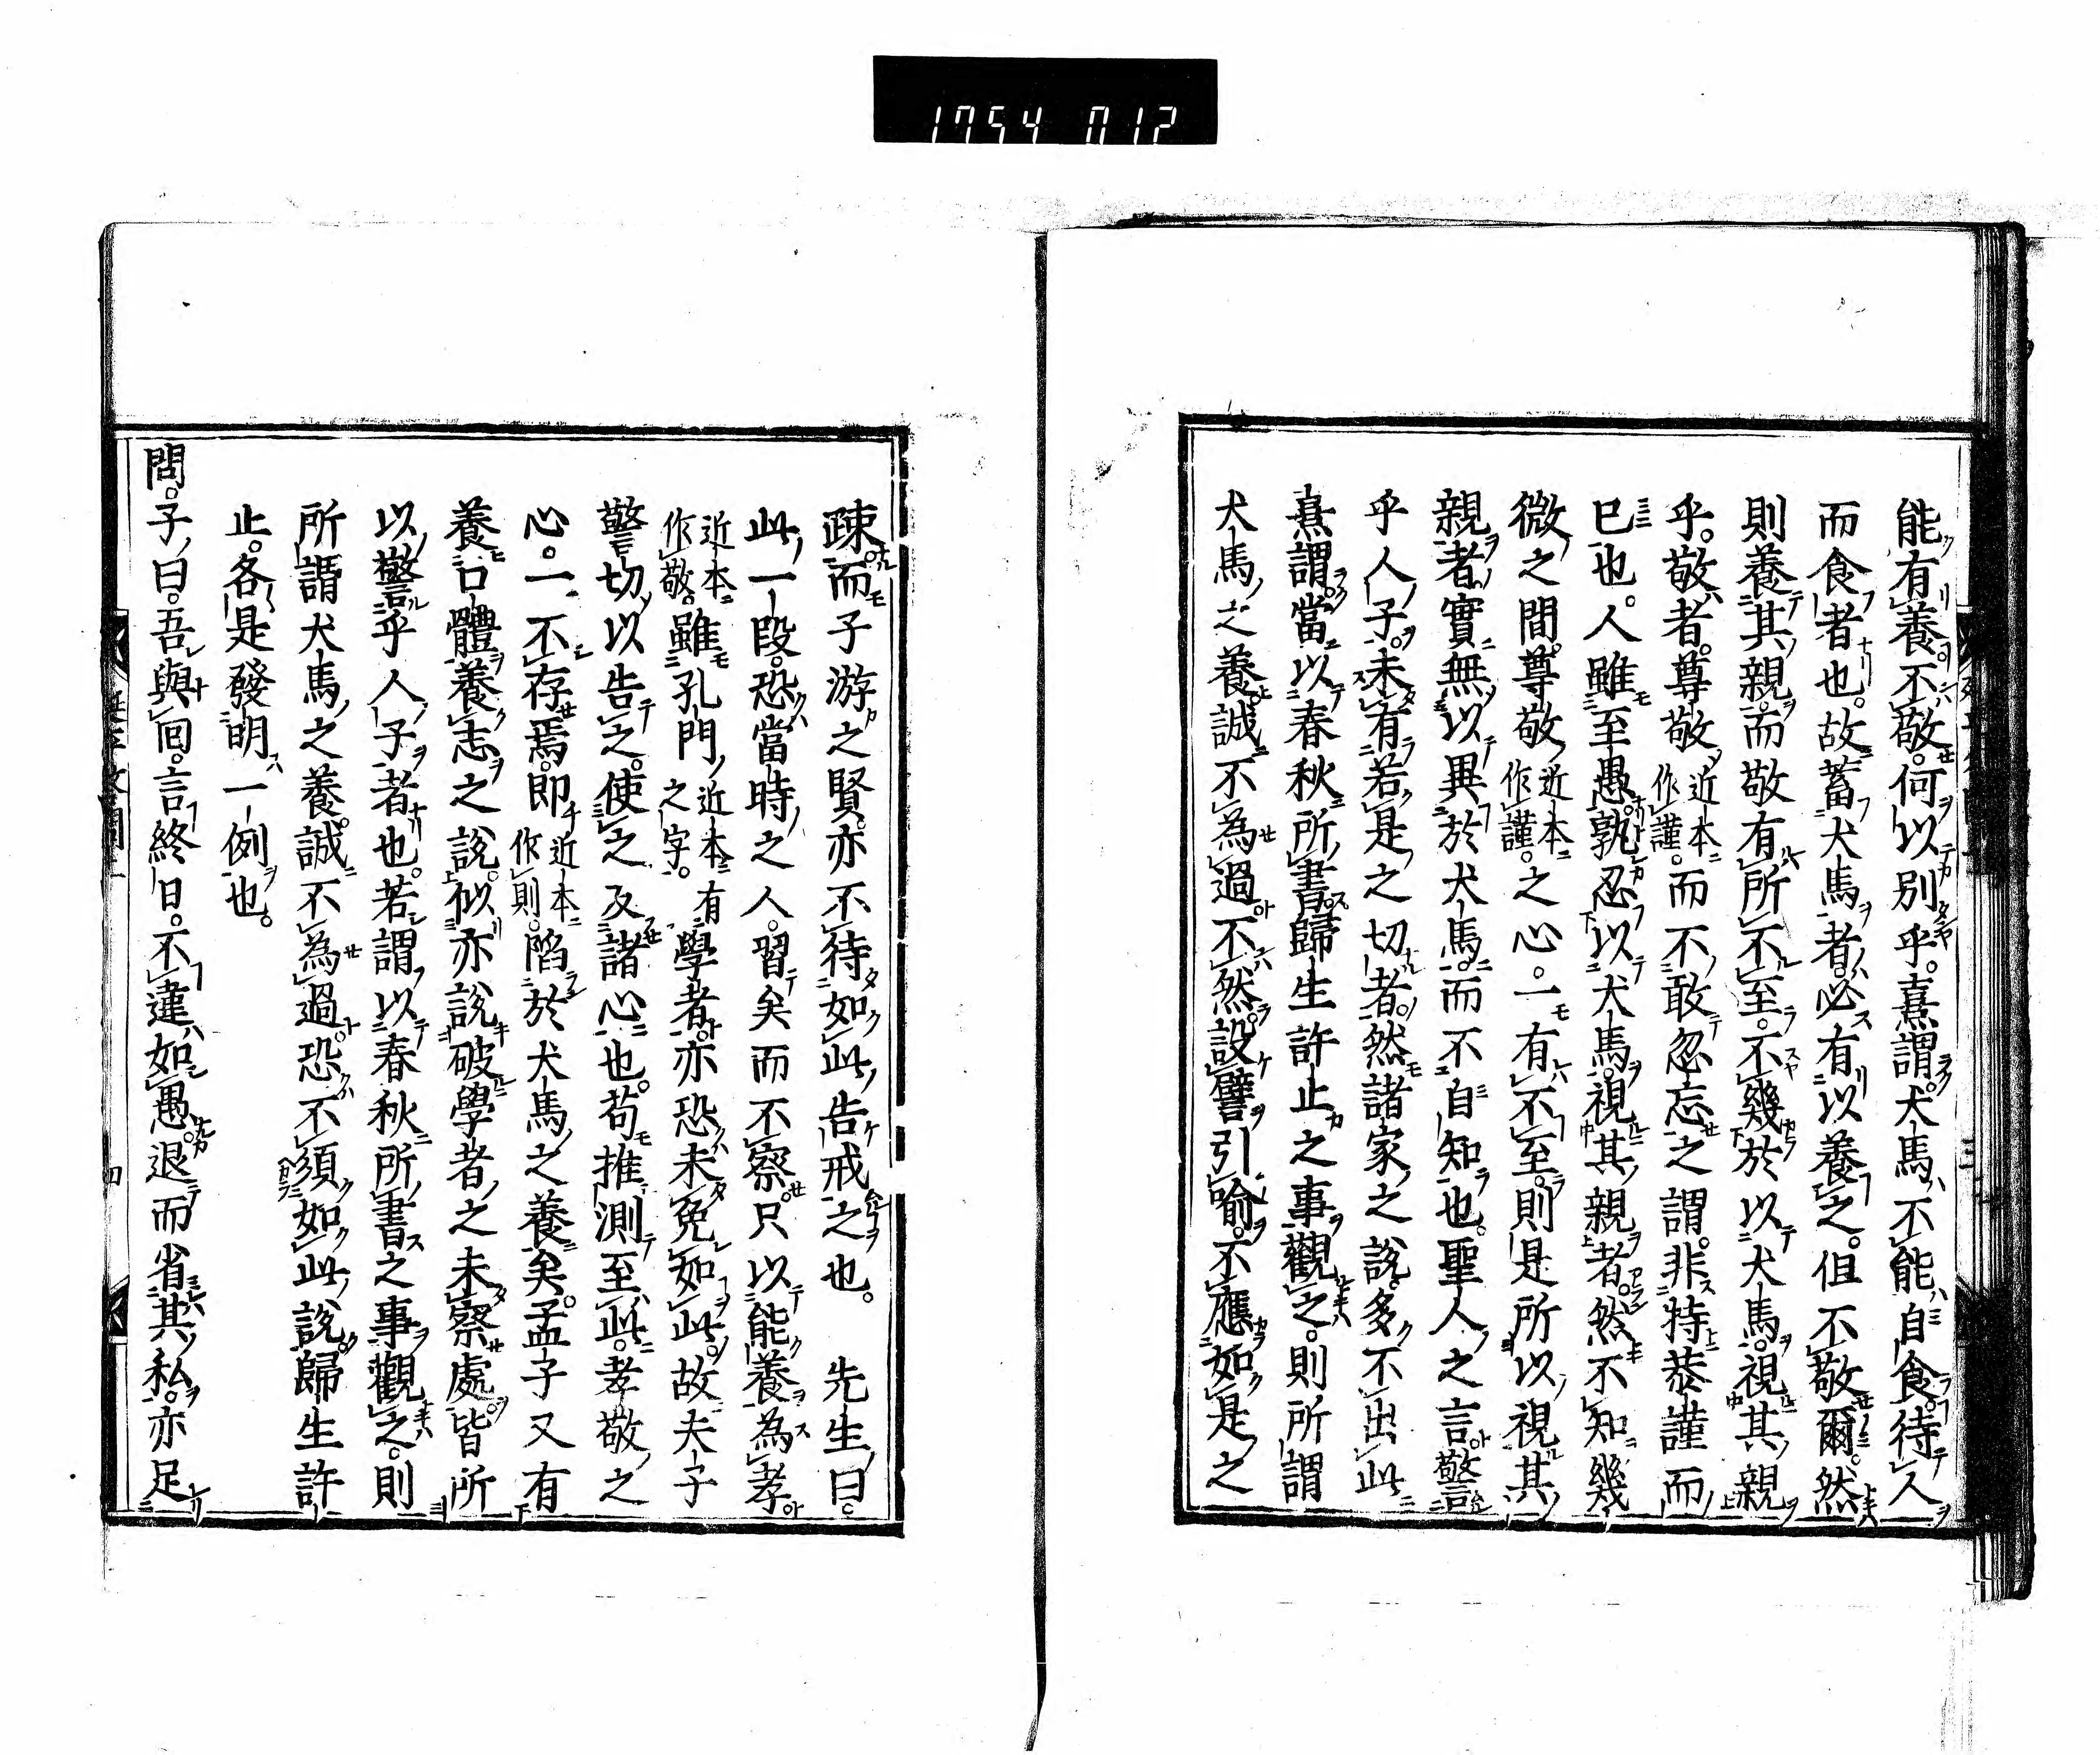 1754 012
能有養不敬。何以別乎。熹謂。犬馬不能自食。待人
而食者也。故蓄犬馬者。必有以養之。但不敬爾。然
則養其親。而敬有所不至。不幾於以犬馬。視其親
乎。敬者。尊敬近本作謹。而不敢忽忘之謂。非特恭謹而
已也。人雖至愚。孰忍以犬馬。視其親者。然不知幾
微之間。尊敬近本作謹。之心。一有不至。則是所以視其
親者。實無以異於犬馬。而不自知也。聖人之言警
乎人子。未有若是之切者。然諸家之說。多不出此
熹謂。當以春秋所書歸生許止之事觀之。則所謂
犬馬之養。誠不為過。不然。設譬引喻。不應如是之
疎。而子游之賢。亦不待如此告戒之也。 先生曰。
此一段。恐當時之人。習矣而不察。只以能養為孝
近本作敬。雖孔門近本有之字。學者。亦恐未免如此。故夫子
警切以告之。使之反諸心也。苟推測至此。孝敬之
心。一不存焉。即近本作則。陷於犬馬之養矣。孟子又有
養口體養志之說。似亦說破學者之未察處。皆所
以警乎人子者也。若謂以春秋所書之事觀之。則
所謂犬馬之養。誠不為過。恐不須如此說。歸生許
止。各是發明一例也。
問。子曰。吾與回。言終日。不違如愚。退而省其私。亦足
四